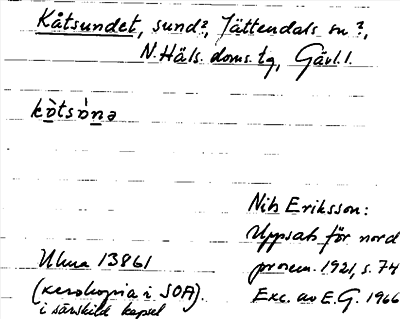 Kåtsundet, sund?, Jättendals sn?,
N. Häls. doms. tg, Gävl. l.
kò̱tsò̱ṉə
Nils Eriksson:
Uppsats för nord
prosem. 1921, s. 74
Exc. av E.G. 1966
Uluma 13861
(xerokopia i SOA).
i särskild kapsel